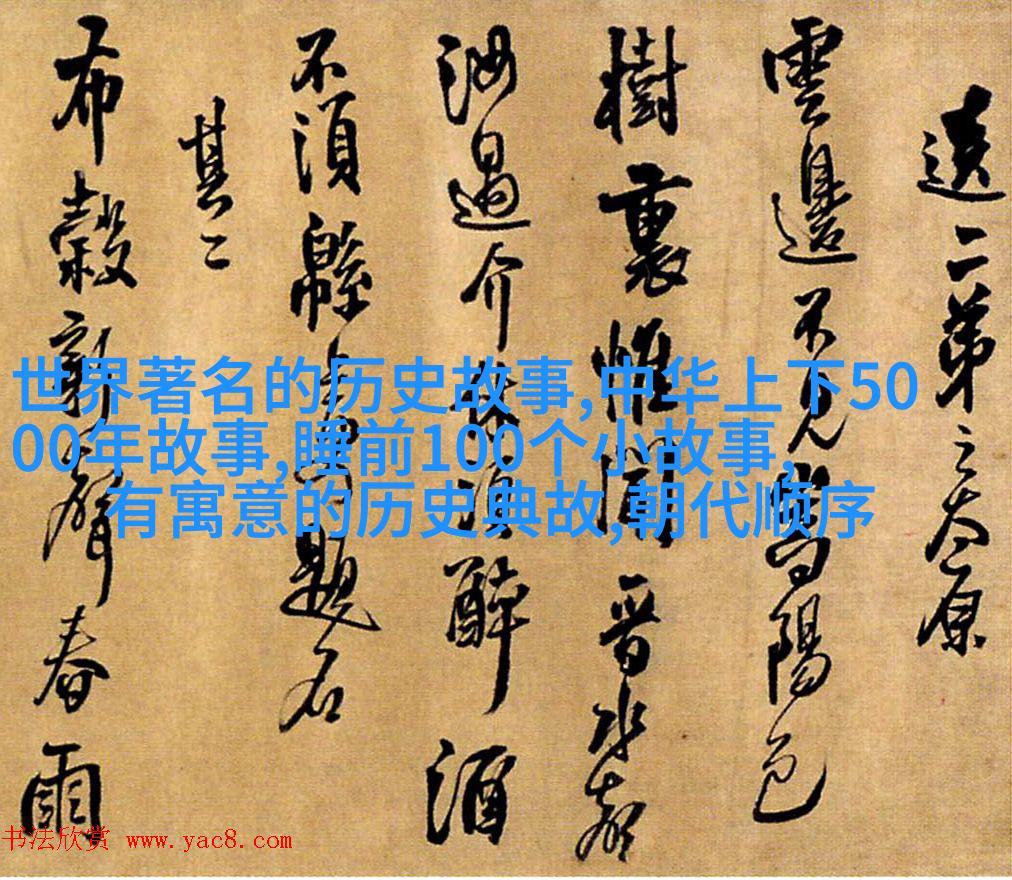 送二弟之太原
雲邊不見陽色
樹裏惟聞晉水
汝過介林須醉酒
不須緜題名
其二
布穀新聲春雨
世界著名的历史故事,中华上下50
00年故事,睡前100个小故事,
有寓意的历史典故,朝代顺序
书法欣赏 www.yac8.com